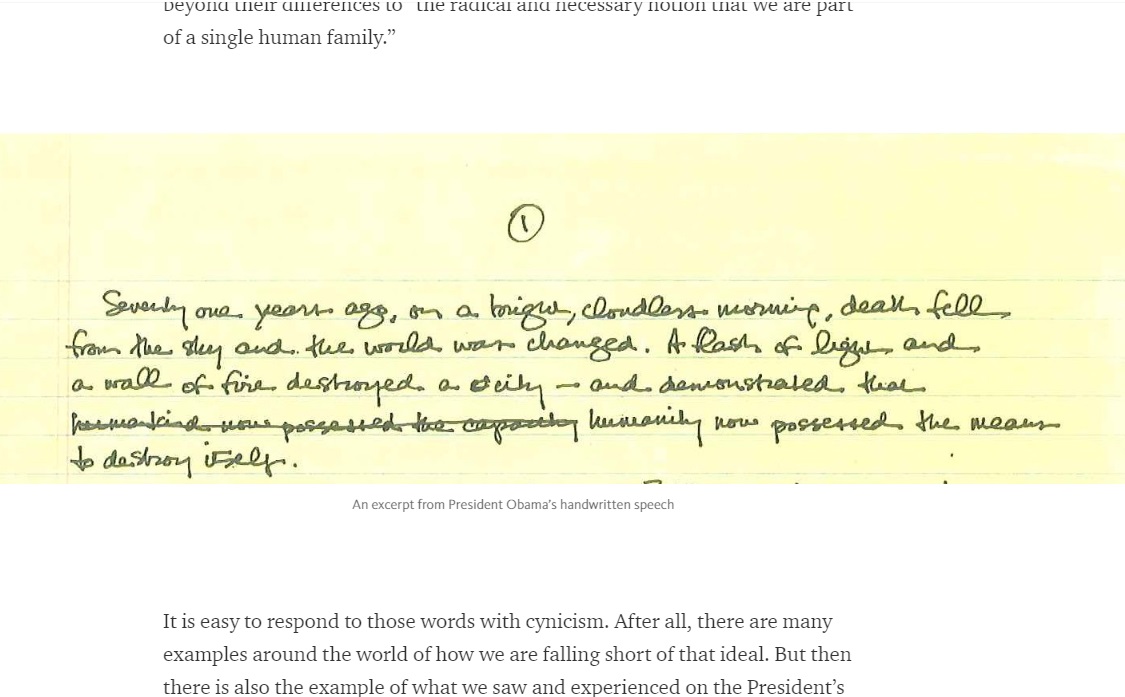 beyond their differences to “the radical and necessary notion that we are part
of a single human family.”
1
Seventy one years ago, on a bright, cloudless morning, death fell
from the sky and the world was changed. A flash of light and
a wall of fire destroyed a city – and demonstrated that
humankind now possessed the capacity humanity now possessed the means
to destroy itself.
An excerpt from President Obama’s handwritten speech
It is easy to respond to those words with cynicism. After all, there are many
examples around the world of how we are falling short of that ideal. But then
there is also the example of what we saw and experienced on the President’s